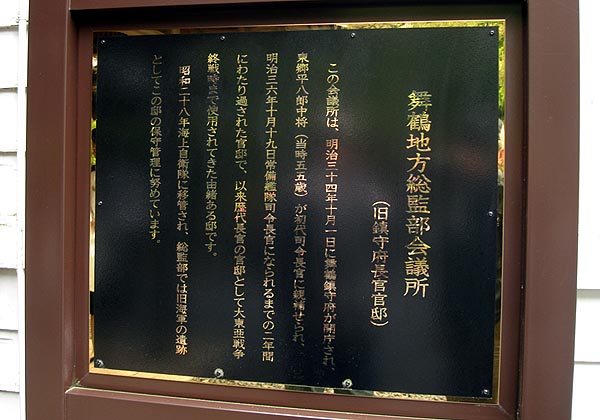 舞鶴地方総監部会議所
(旧鎮守府長官官邸)
この会議所は、明治三十四年十月一日に舞鶴鎮守府が開庁され、
東郷平八郎中将(当時五五歳)が初代司令長官に親補せられ、
明治三六年十月十九日常備艦隊司令長官になられるまでの二年間
にわたり過された官邸で、以来歴代長官の官邸として大東亜戦争
終戦時まで使用されてきた由緒ある邸です。
昭和二十八年海上自衛隊に移管され、総監部では旧海軍の遺跡
としてこの邸の保守管理に努めています。